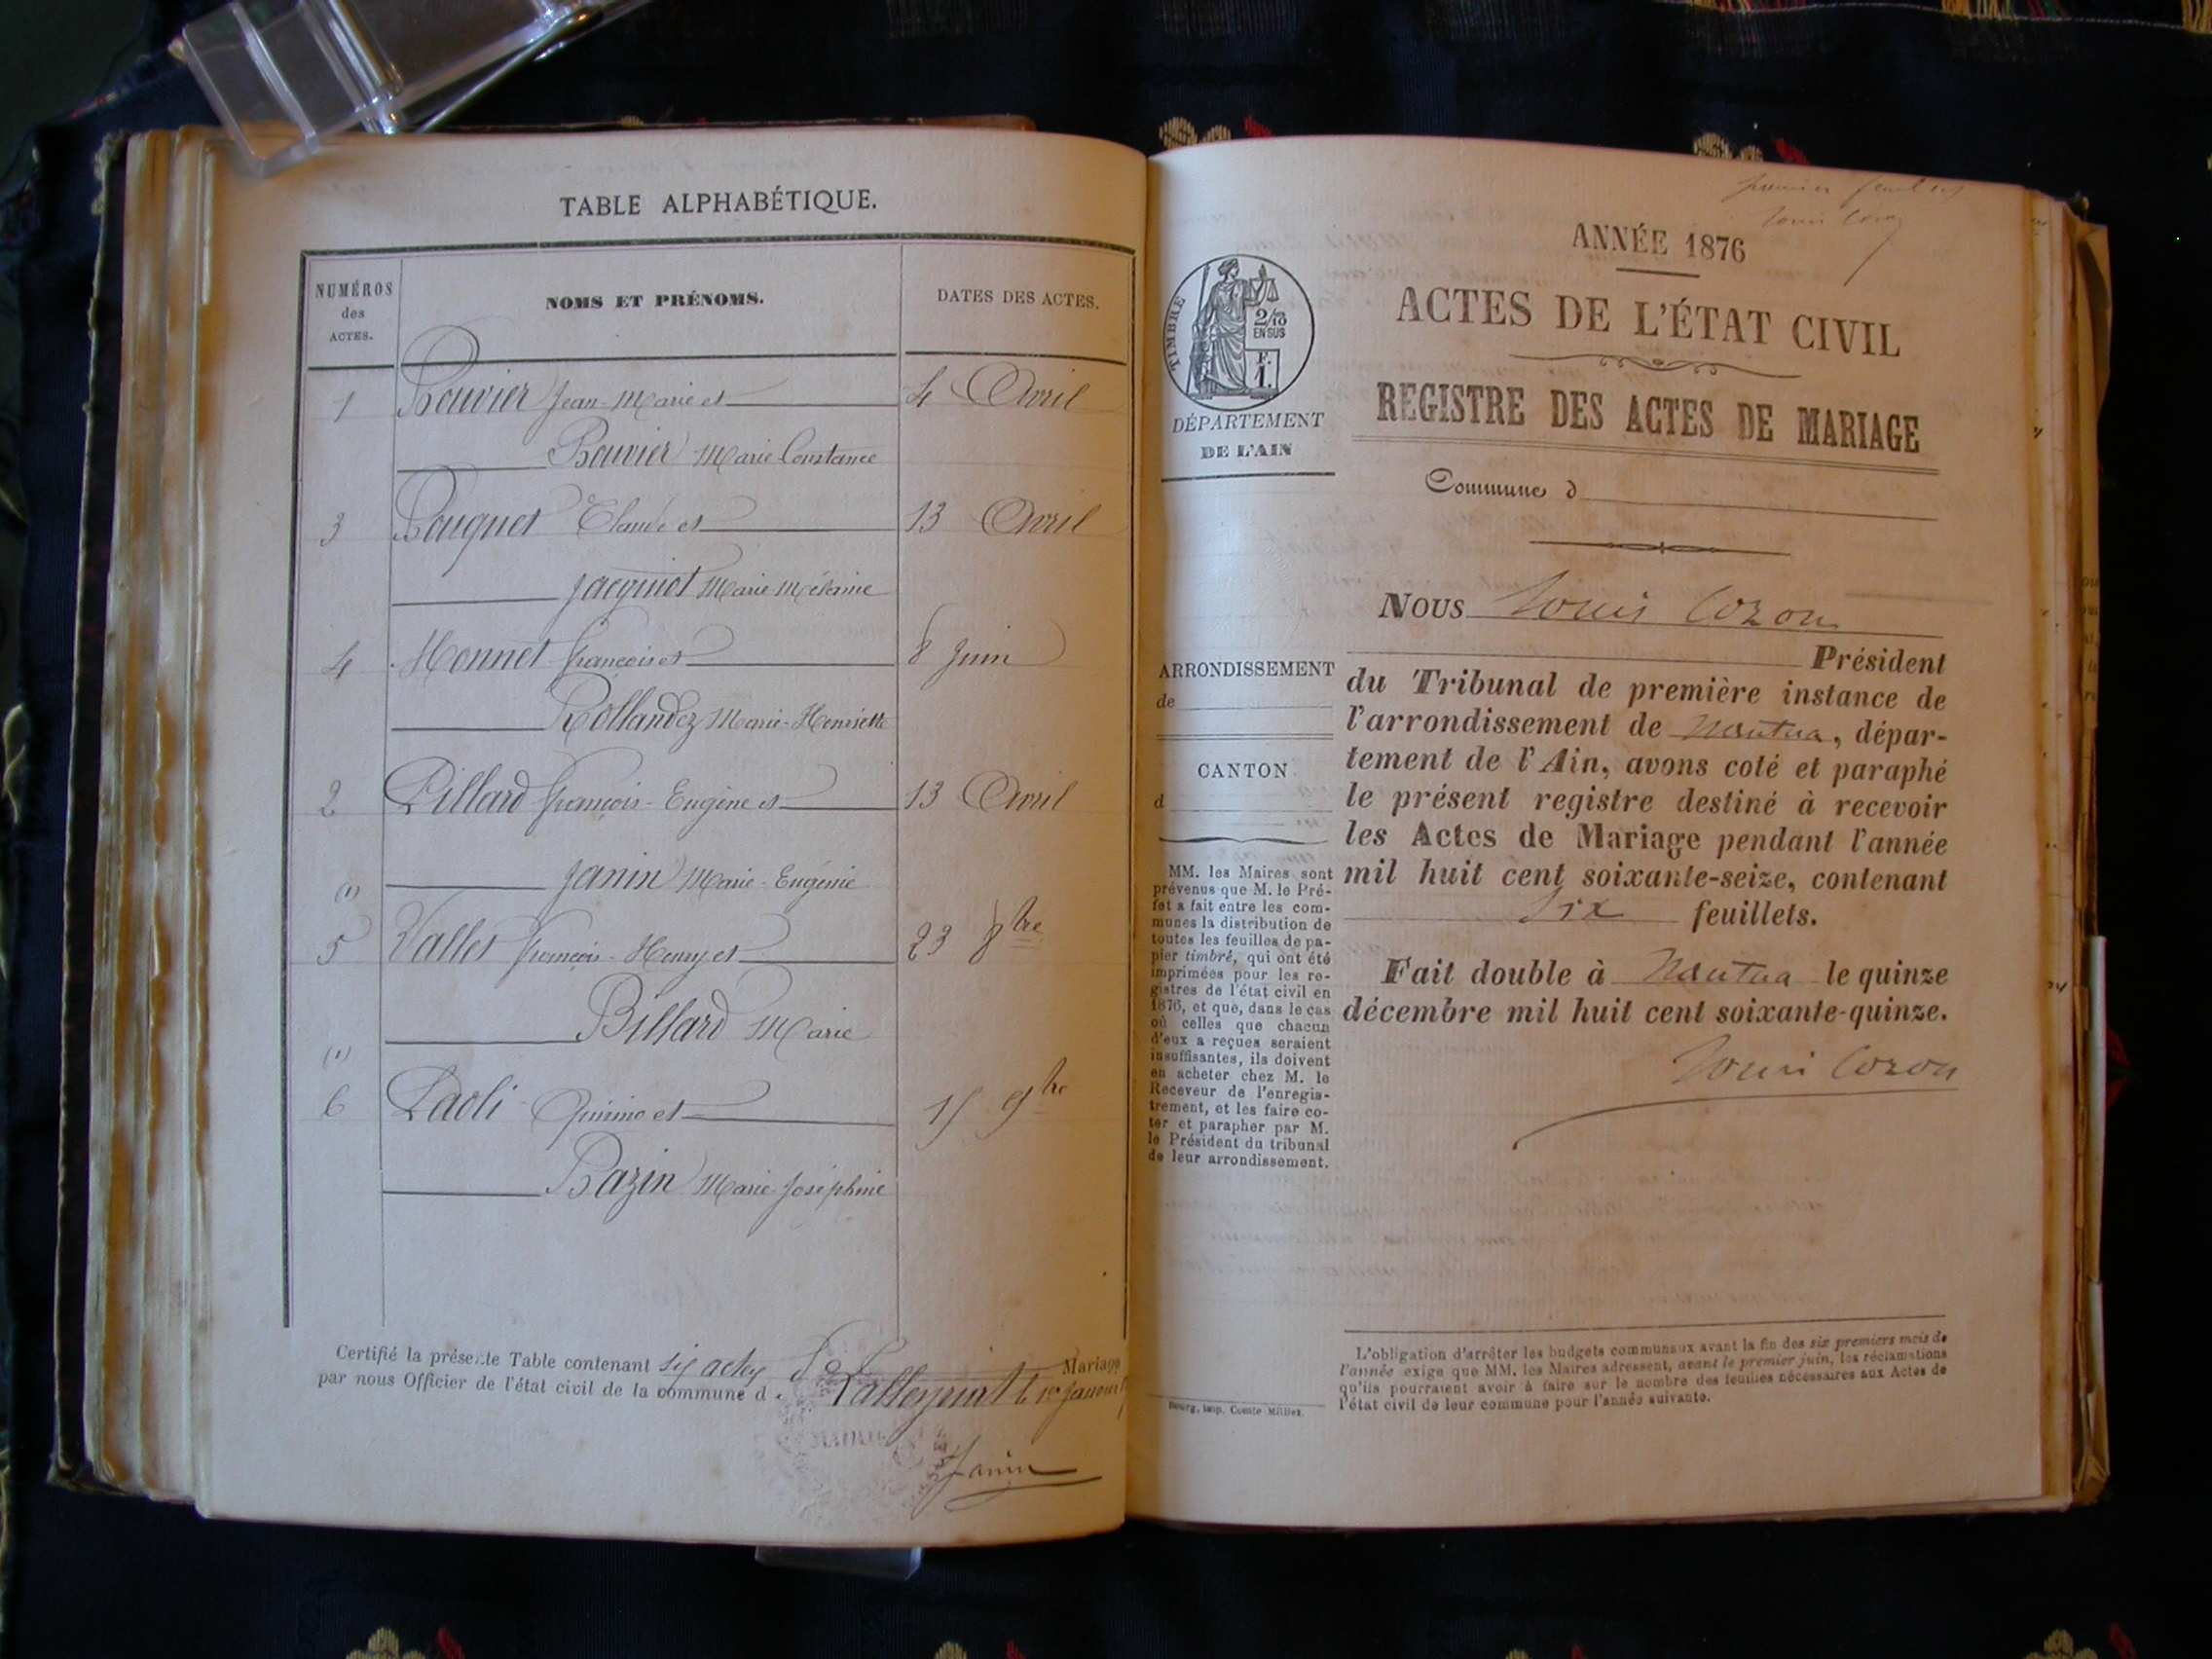 TABLE ALPHABÉTIQUE.
NUMÉROS
des
ACTES.
NOMS ET PRÉNOMS.
DATES DES ACTES.
1 Bouvier Jean-Marie et 4 Avril
Bouvier Marie Constance
3 Bouquet Claude et 13 Avril
Jacquiot Marie Mélanie
4 Monnet françois et 8 Juin
Rollandez Marie-Henriette
2 Pillard françois-Eugène et 13 Avril
Janin Marie-Eugénie
(1)
5 Vallet françois-Henry et 23 8bre
Billard Marie
(1)
6 Paoli Quirino et 15 9bre
Bazin Marie Joséphine
Certifié la présente Table contenant six actes de Mariage
par nous Officier de l'état civil de la commune d le 1er Janvier
Janin
premier feuillet
Louis Cozon
ANNÉE 1876
ACTES DE L'ÉTAT CIVIL
REGISTRE DES ACTES DE MARIAGE
TIMBRE
2/10
EN SUS
F.
1.
DÉPARTEMENT
DE L'AIN
Commune d
Nous Louis Cozon
Président
du Tribunal de première instance de
l'arrondissement de Nantua, dépar-
tement de l'Ain, avons coté et paraphé
le présent registre destiné à recevoir
les Actes de Mariage pendant l'année
mil huit cent soixante-seize, contenant
Six feuillets.
Fait double à Nantua le quinze
décembre mil huit cent soixante-quinze.
Louis Cozon
ARRONDISSEMENT
de
CANTON
d
MM. les Maires sont
prévenus que M. le Pré-
fet a fait entre les com-
munes la distribution de
toutes les feuilles de pa-
pier timbré, qui ont été
imprimées pour les re-
gistres de l'état civil en
1876, et que, dans le cas
où celles que chacun
d'eux a reçues seraient
insuffisantes, ils doivent
en acheter chez M. le
Receveur de l'enregis-
trement, et les faire co-
ter et parapher par M.
le Président du tribunal
de leur arrondissement.
Bourg, imp. Comte-Milliet.
L'obligation d'arrêter les budgets communaux avant la fin des six premiers mois de
l'année exige que MM. les Maires adressent, avant le premier juin, les réclamations
qu'ils pourraient avoir à faire sur le nombre des feuilles nécessaires aux Actes de
l'état civil de leur commune pour l'année suivante.